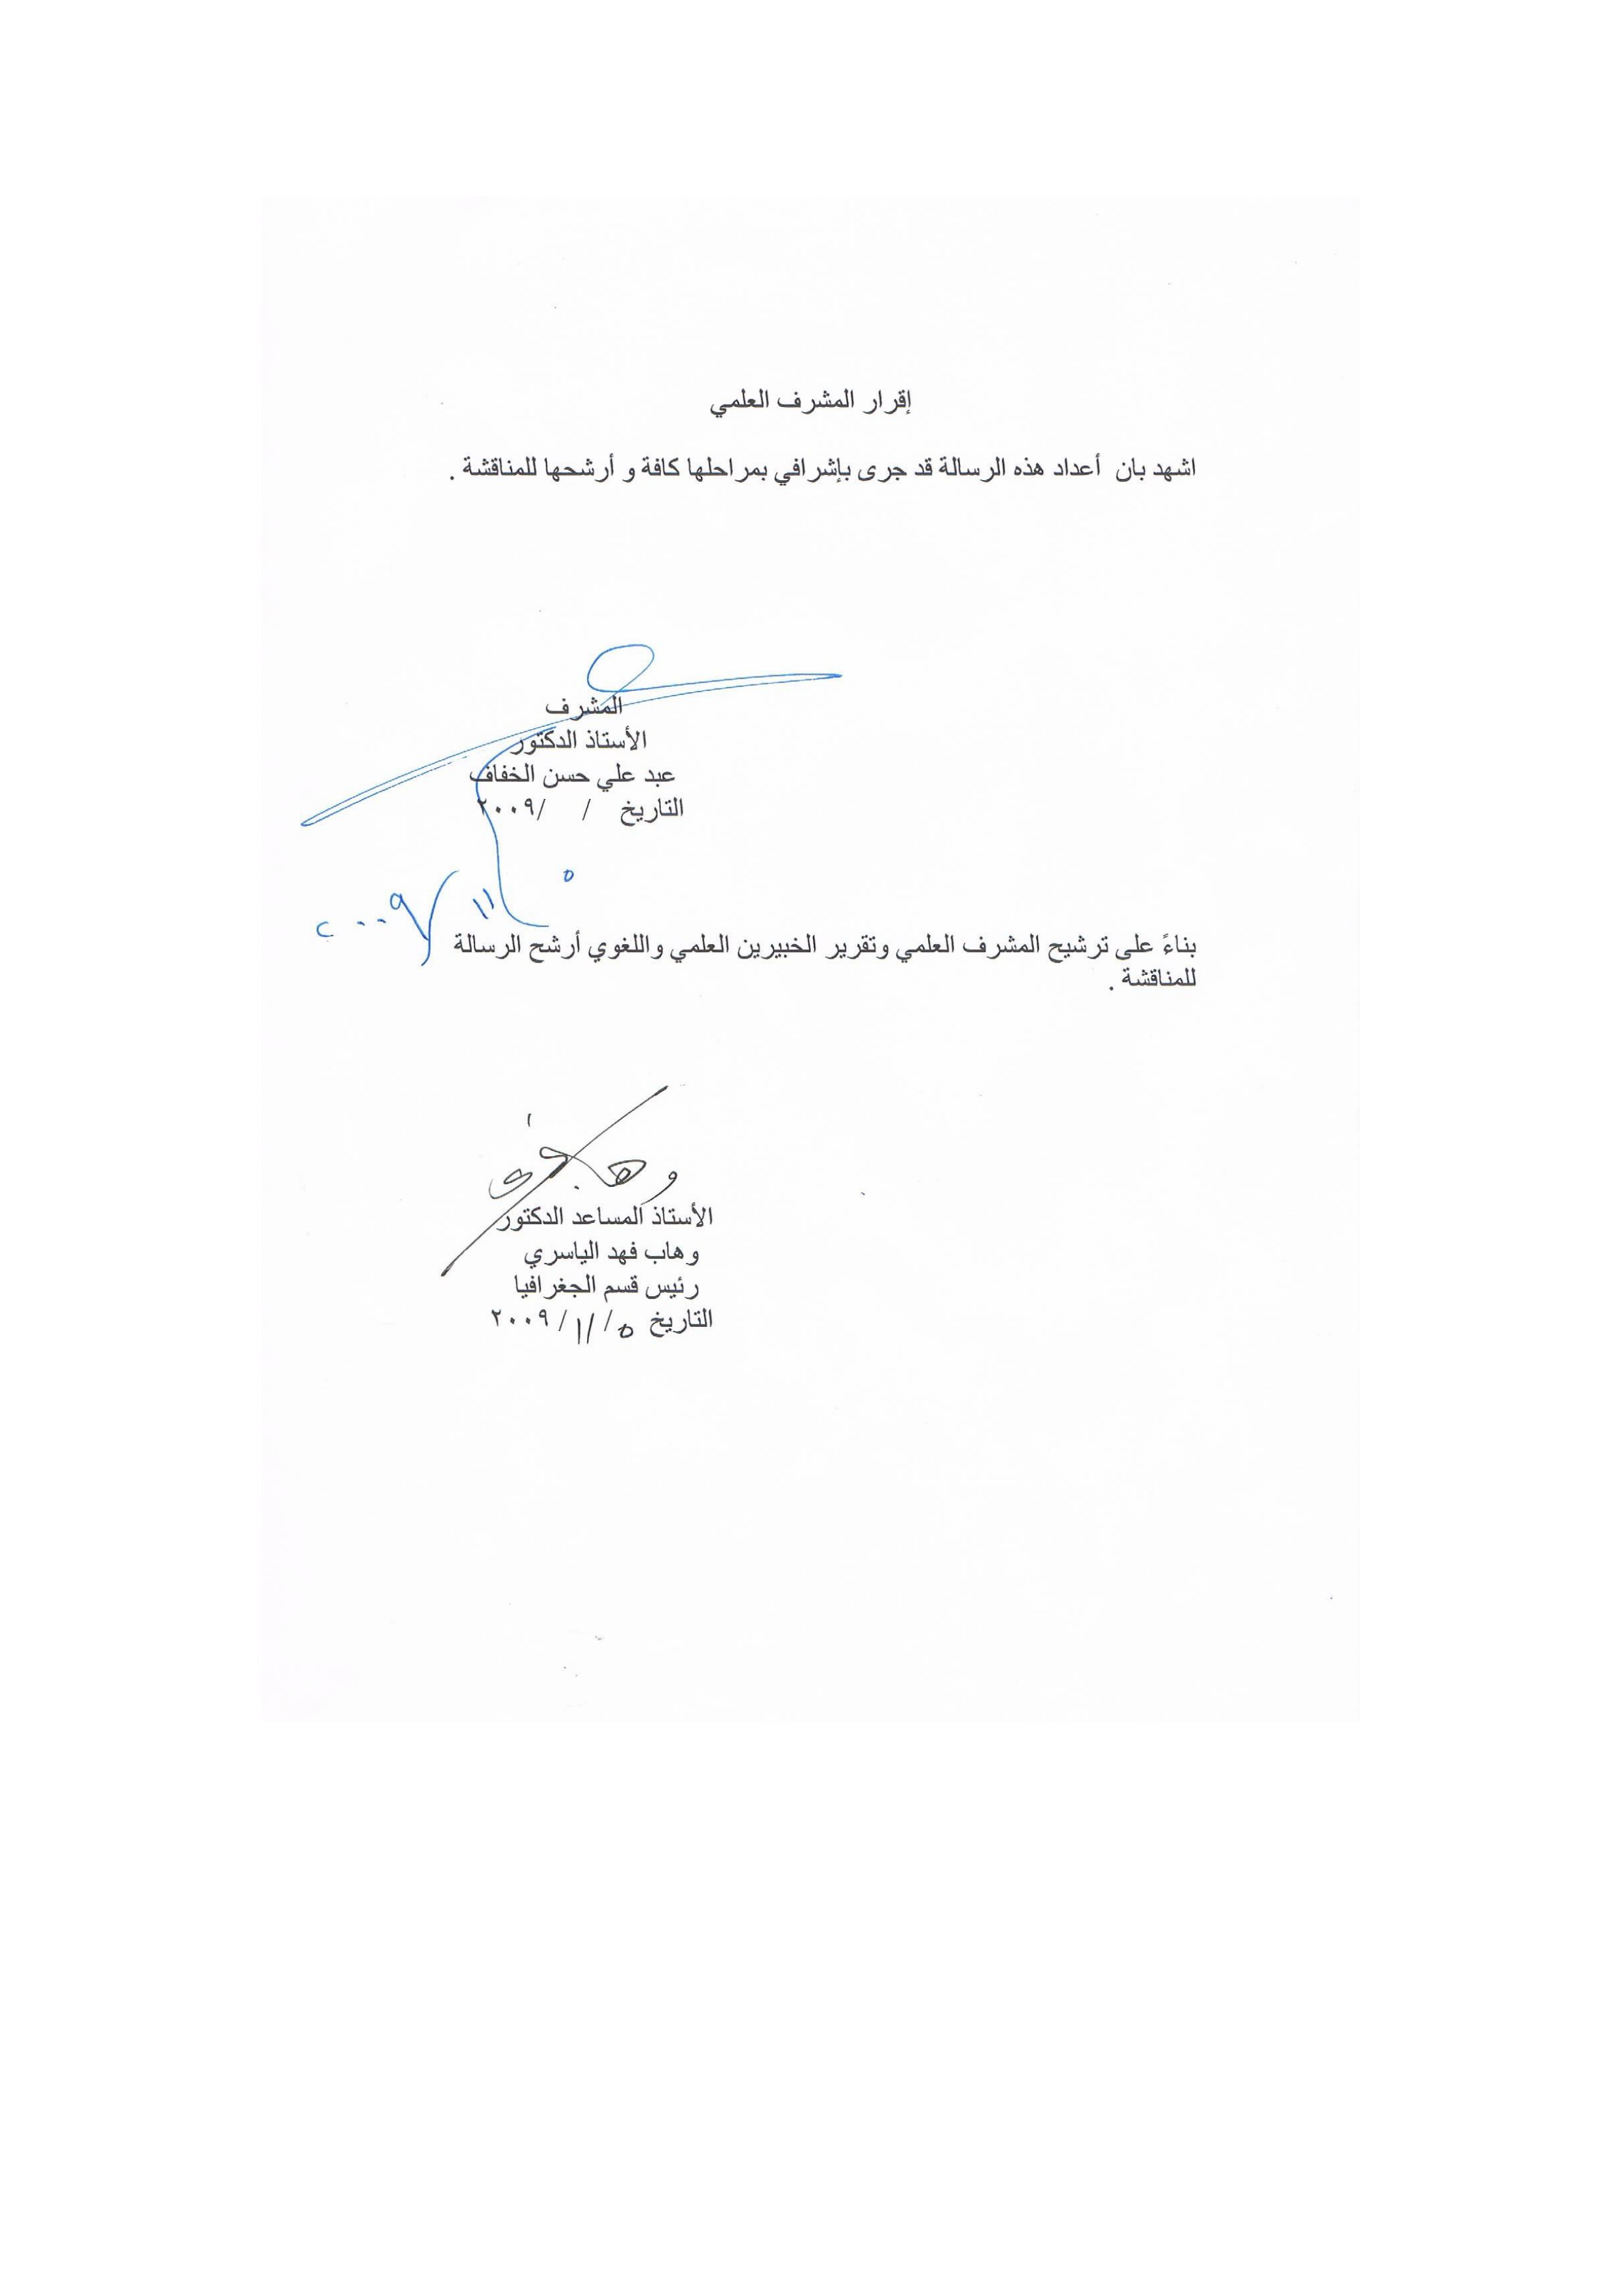 إقرار المشرف العلمي
اشهد بان أعداد هذه الرسالة قد جرى بإشرافي بمراحلها كافة و أرشحها للمناقشة .
المشرف
الأستاذ الدكتور
عبد علي حسن الخفاف
التاريخ / /٢٠٠٩
٥ / ١١ / ٢٠٠٩
بناءً على ترشيح المشرف العلمي وتقرير الخبيرين العلمي واللغوي أرشح الرسالة
للمناقشة .
الأستاذ المساعد الدكتور
وهاب فهد الياسري
رئيس قسم الجغرافيا
التاريخ ٥/ ١١/ ٢٠٠٩